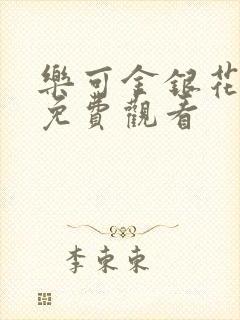 樂可金銀花
免費觀看
李東東